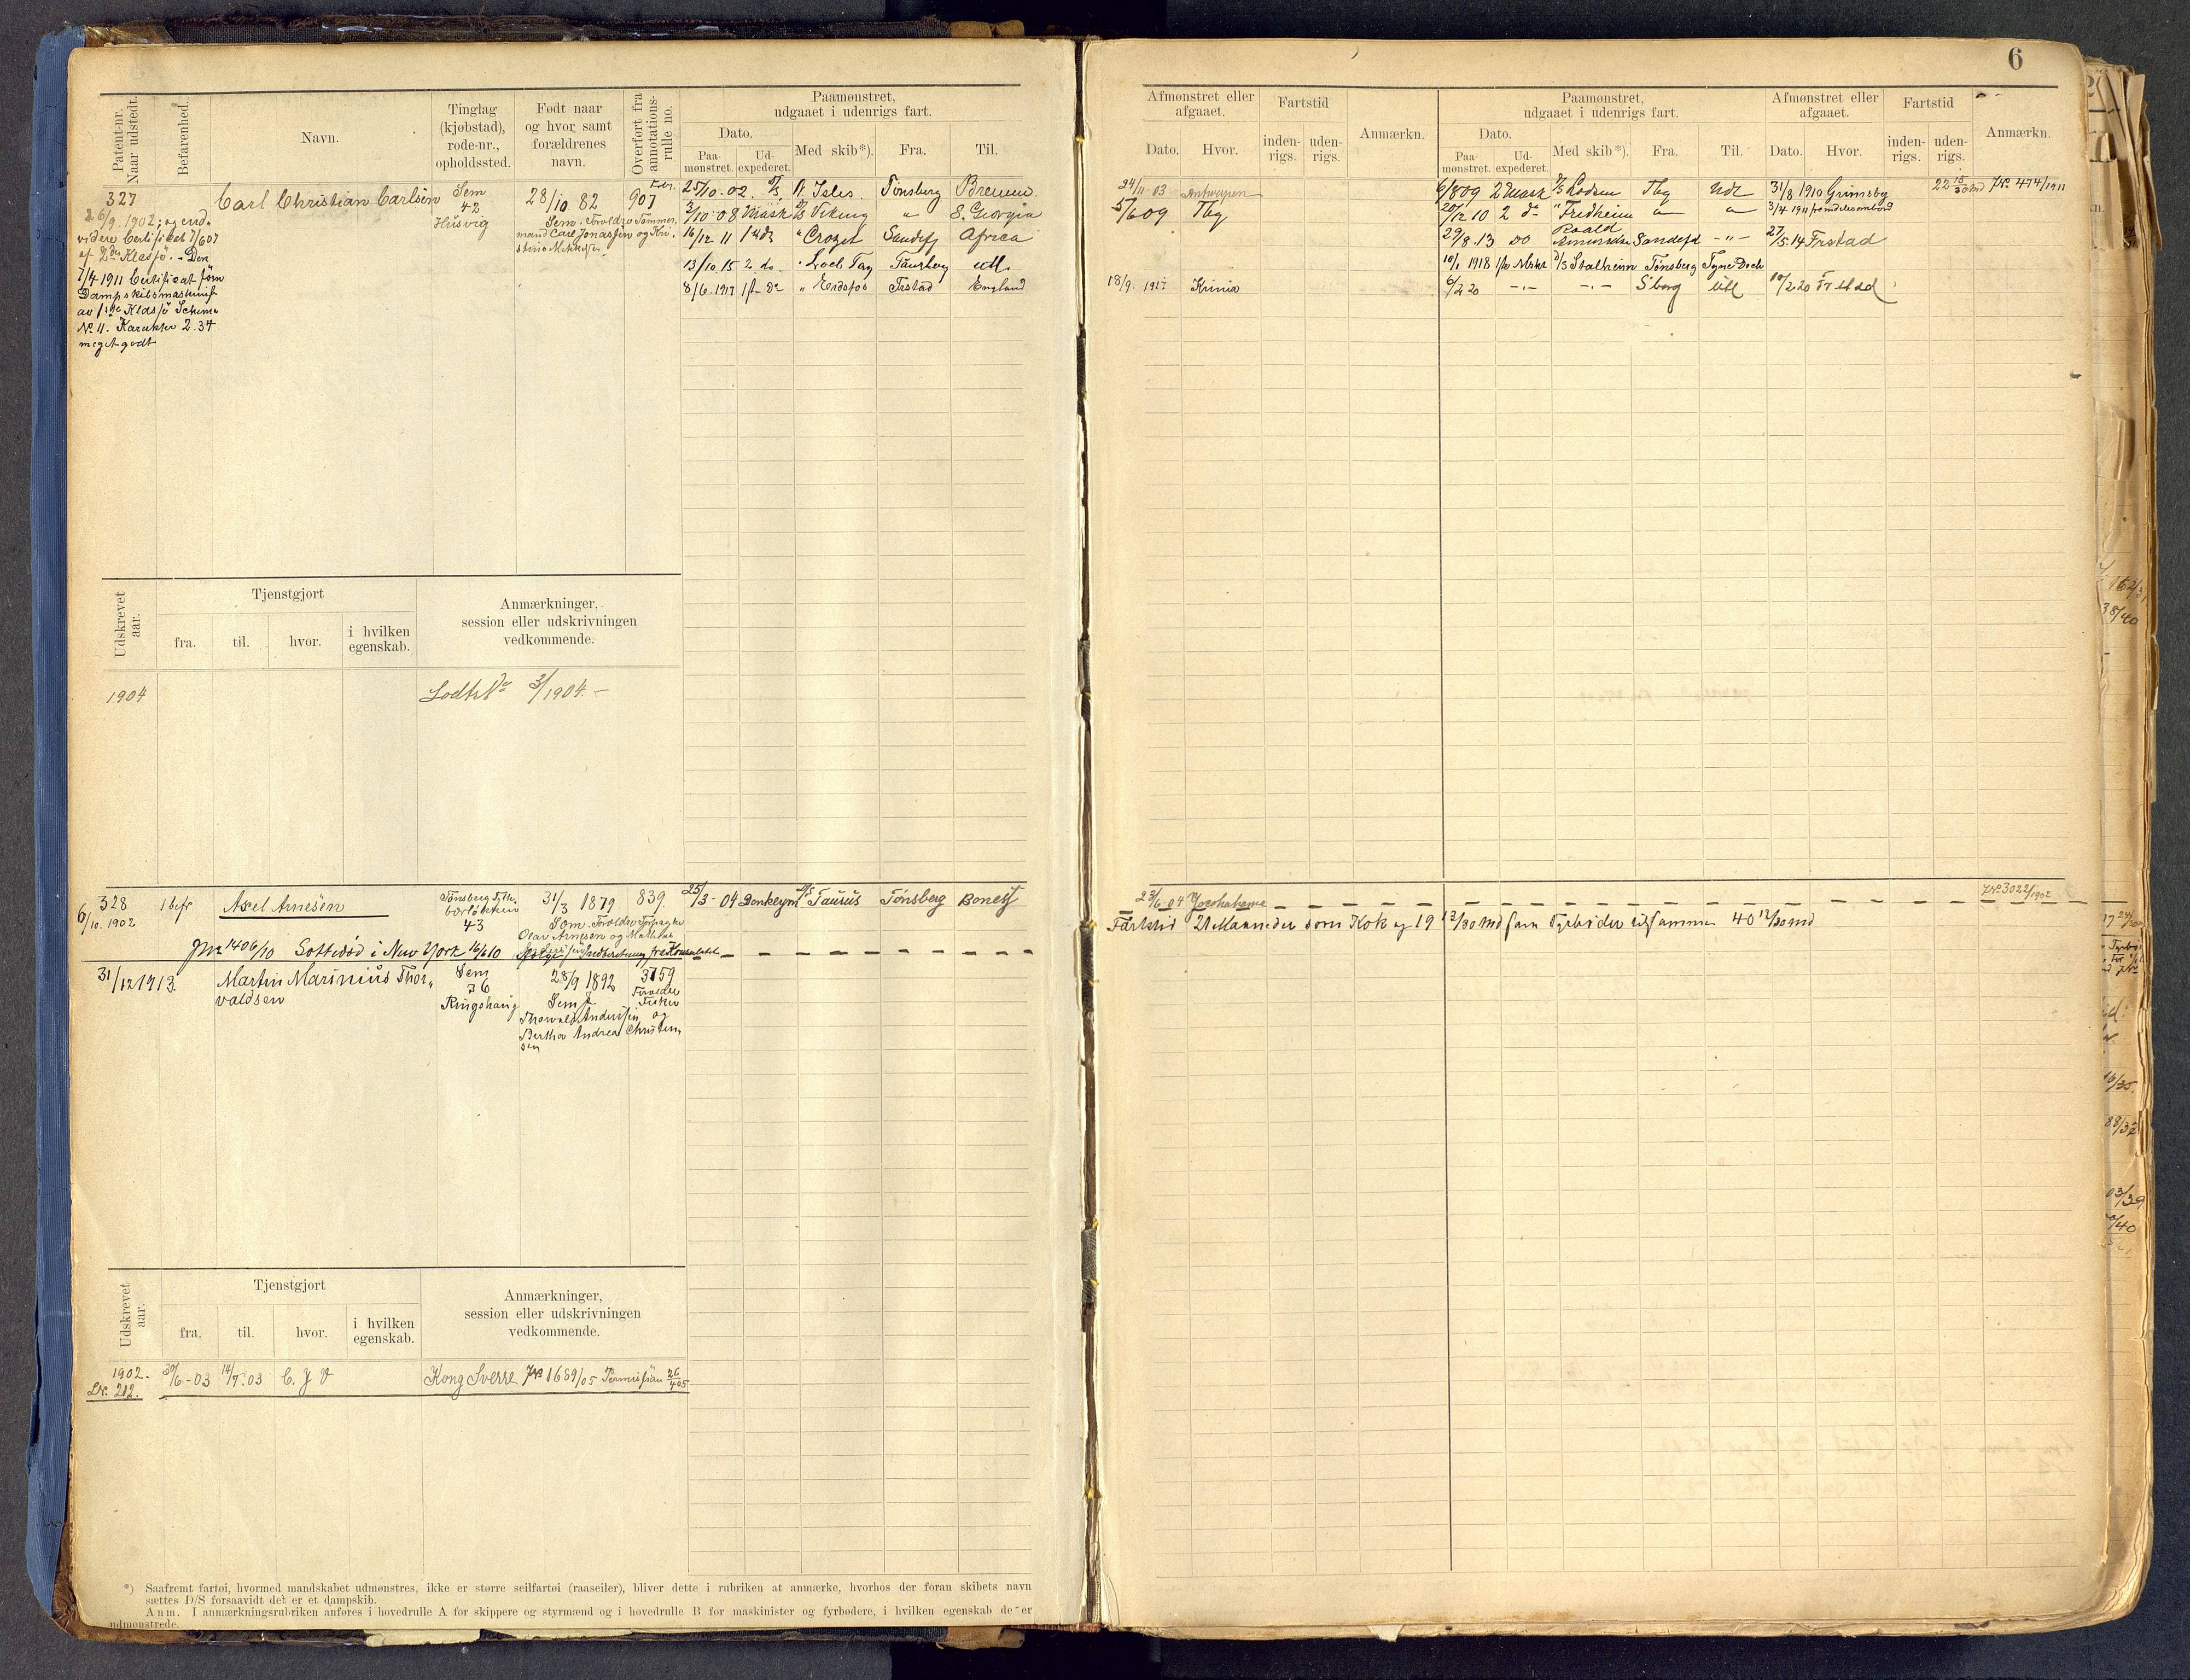 6
Patent-nr.
Naar udstedt.
Befarenhed.
Navn.
Tinglag
(kjøbstad),
rode-nr.,
opholdssted.
Født naar
og hvor samt
forældrenes
navn.
Overført fra
annotations-
rulle no.
Paamønstret,
udgaaet i udenrigs fart.
Dato.
Paa-
mønstret.
Ud-
expederet.
Med skib*).
Fra.
Til.
Afmønstret eller
afgaaet.
Dato.
Hvor.
Fartstid
inden-
rigs.
uden-
rigs.
Anmærkn.
Paamønstret,
udgaaet i udenrigs fart.
Dato.
Paa-
mønstret.
Ud-
expederet.
Med skib*).
Fra.
Til.
Afmønstret eller
afgaaet.
Dato.
Hvor.
Fartstid
inden-
rigs.
uden-
rigs.
Anmærkn.
327
26/9. 1902; og end-
videre Certifikat 7/6 07
af 2den Klasse. - Den
7/4 1911 Certificat som
Dampskibsmaskinist
av 1ste Klasse Schema
No 11. Karakter 2.34
meget godt
Carl Christian Carlsen
Sem
42
Husvig
28/10. 82
Sem. Forældre Tømmer-
mand Carl Jonassen og Kri-
907
25/10. 02. Isles Tønsberg Bremen
3/10 08 Mask D/S Viking " S. Georgia
16/12 11 1 do " Crozet Sandefj Africa
13/10. 15 2 do. " Loch Tay Tønsberg Utl.
8/6. 1917 do " Eidsfos Frstad England
24/11 03 Antwerpen
5/6 09 Tbg
18/9. 1917 Krinia
6/8 09 2 Mask D/S Tbg Udl 31/8 1910 Grimsby 22 15/30 md JNo 474/1911
20/12 10 2 do " Fredheim " " 3/4 1911 fremdeles ombord
29/8. 13 Do Roald Amundsen Sandefd - " - 27/5. 14 Frstad
10/1 1918 D/S Stalheim Tønsberg Tyne Dock
6/2 20 - " - - " - Sborg Utl 10/2 20
Udskrevet
aar.
Tjenstgjort
fra.
til.
hvor.
i hvilken
egenskab.
Anmærkninger,
session eller udskrivningen
vedkommende.
1904
3/1904. -
328
6/10. 1902
1 befr
Axel Arnesen
Tønsberg
43
31/3 1879
Sem. Forældre
Olav Arnesen og Mathilde
839.
25/3 - 04 Donkeym Taurus Tønsberg
23/6 04 Yocohahama
JNo 3022/1902
Fartstid 21 Maaneder som Kok og 19 12/30 Md som Fyrbøder tilsammen 40 12/30 md
JNo 1406/10 Sottedød i New York 16/6 10
31/12 1913.
Martin Marinius Thor-
valdsen
Sem
36
Ringshaug
28/9 1892
Sem f.
Thorvald Andersen og
Bertha Andrea Christen-
sen
3159
Forældre
Fisker
Udskrevet
aar.
Tjenstgjort
fra.
til.
hvor.
i hvilken
egenskab.
Anmærkninger,
session eller udskrivningen
vedkommende.
1902.
Lr. 212.
30/6 - 03 14/7. 03 C. J V Kong Sverre JNo 1689/05 26/4 05
*) Saafremt fartøi, hvormed mandskabet udmønstres, ikke er større seilfartøi (raaseiler), bliver dette i rubriken at anmærke, hvorhos der foran skibets navn
sættes D/S forsaavidt det er et dampskib.
Anm. I anmærkningsrubriken anføres i hovedrulle A for skippere og styrmænd og i hovedrulle B for maskinister og fyrbødere, i hvilken egenskab de er
udmønstrede.